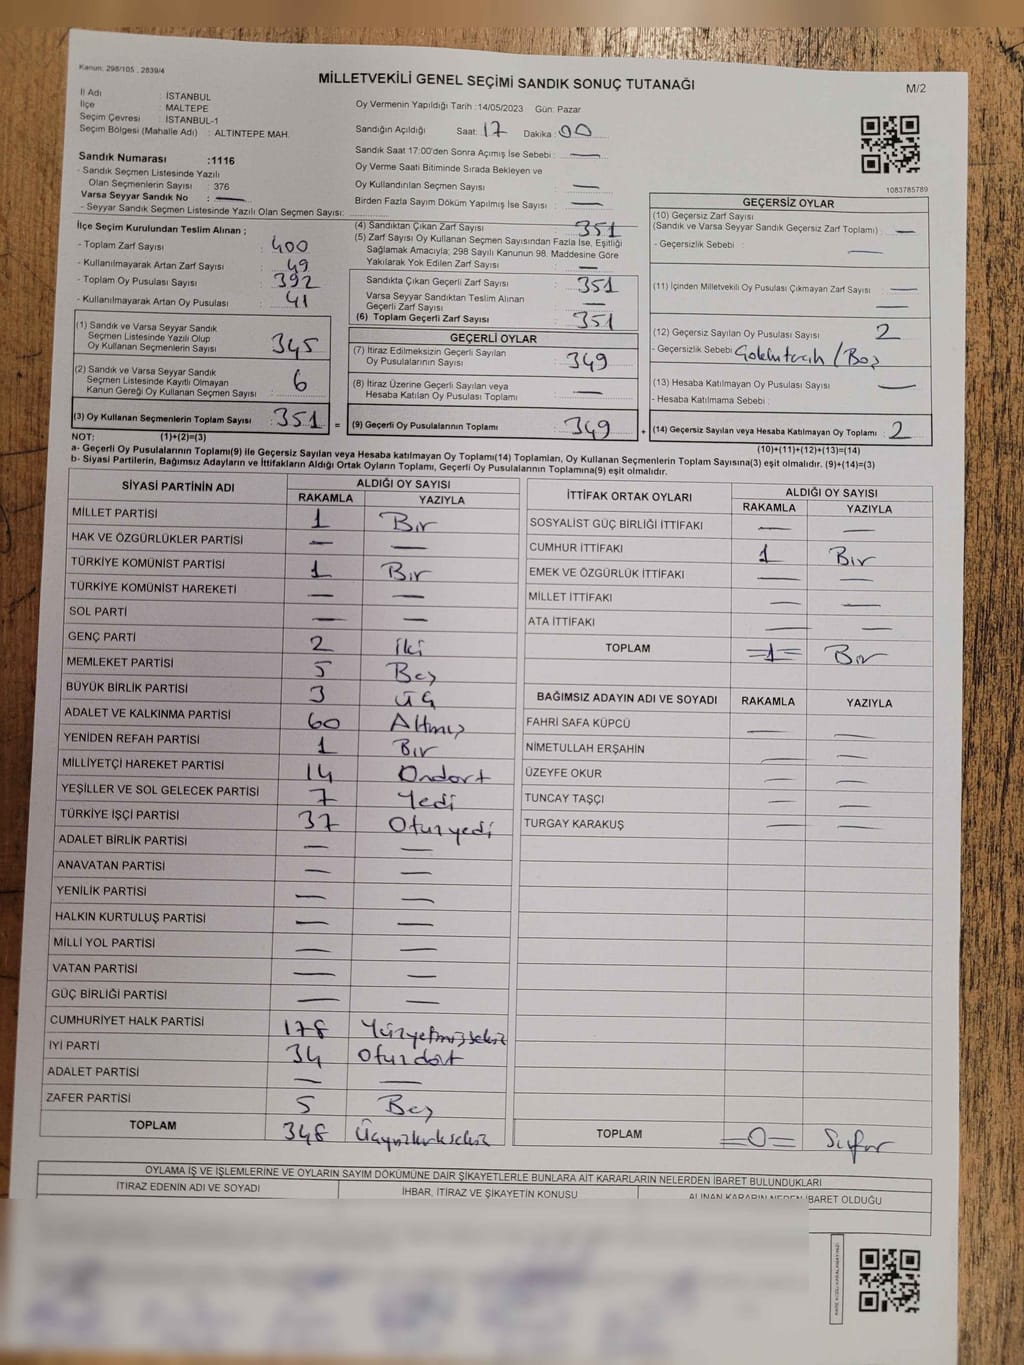 Kanun: 298/105 , 2839/4
MİLLETVEKİLİ GENEL SEÇİMİ SANDIK SONUÇ TUTANAĞI
M/2
İl Adı : İSTANBUL
İlçe : MALTEPE
Seçim Çevresi : İSTANBUL-1
Seçim Bölgesi (Mahalle Adı) : ALTINTEPE MAH.
Oy Vermenin Yapıldığı Tarih :14/05/2023 Gün: Pazar
Sandığın Açıldığı Saat: 17 Dakika : 00
Sandık Saat 17:00'den Sonra Açımış İse Sebebi : —
Oy Verme Saati Bitiminde Sırada Bekleyen ve
Oy Kullandırılan Seçmen Sayısı : —
Birden Fazla Sayım Döküm Yapılmış İse Sayısı : —
1083785789
Sandık Numarası :1116
- Sandık Seçmen Listesinde Yazılı
Olan Seçmenlerin Sayısı : 376
Varsa Seyyar Sandık No : —
- Seyyar Sandık Seçmen Listesinde Yazılı Olan Seçmen Sayısı:
İlçe Seçim Kurulundan Teslim Alınan ;
- Toplam Zarf Sayısı : 400
- Kullanılmayarak Artan Zarf Sayısı : 49
- Toplam Oy Pusulası Sayısı : 392
- Kullanılmayarak Artan Oy Pusulası : 41
(1) Sandık ve Varsa Seyyar Sandık
Seçmen Listesinde Yazılı Olup
Oy Kullanan Seçmenlerin Sayısı : 345
(2) Sandık ve Varsa Seyyar Sandık
Seçmen Listesinde Kayıtlı Olmayan
Kanun Gereği Oy Kullanan Seçmen Sayısı : 6
(3) Oy Kullanan Seçmenlerin Toplam Sayısı : 351 =
(4) Sandıktan Çıkan Zarf Sayısı : 351
(5) Zarf Sayısı Oy Kullanan Seçmen Sayısından Fazla İse, Eşitliği
Sağlamak Amacıyla; 298 Sayılı Kanunun 98. Maddesine Göre
Yakılarak Yok Edilen Zarf Sayısı : —
Sandıkta Çıkan Geçerli Zarf Sayısı : 351
Varsa Seyyar Sandıktan Teslim Alınan
Geçerli Zarf Sayısı : —
(6) Toplam Geçerli Zarf Sayısı : 351
GEÇERLİ OYLAR
(7) İtiraz Edilmeksizin Geçerli Sayılan
Oy Pusulalarının Sayısı : 349
(8) İtiraz Üzerine Geçerli Sayılan veya
Hesaba Katılan Oy Pusulası Toplamı : —
(9) Geçerli Oy Pusulalarının Toplamı : 349 +
GEÇERSİZ OYLAR
(10) Geçersiz Zarf Sayısı
(Sandık ve Varsa Seyyar Sandık Geçersiz Zarf Toplamı) : —
- Geçersizlik Sebebi : —
(11) İçinden Milletvekili Oy Pusulası Çıkmayan Zarf Sayısı : —
(12) Geçersiz Sayılan Oy Pusulası Sayısı : 2
- Geçersizlik Sebebi : / Boş
(13) Hesaba Katılmayan Oy Pusulası Sayısı : —
- Hesaba Katılmama Sebebi :
(14) Geçersiz Sayılan veya Hesaba Katılmayan Oy Toplamı : 2
NOT: (1)+(2)=(3)
(10)+(11)+(12)+(13)=(14)
a- Geçerli Oy Pusulalarının Toplamı(9) ile Geçersiz Sayılan veya Hesaba katılmayan Oy Toplamı(14) Toplamları, Oy Kullanan Seçmenlerin Toplam Sayısına(3) eşit olmalıdır. (9)+(14)=(3)
b- Siyasi Partilerin, Bağımsız Adayların ve İttifakların Aldığı Ortak Oyların Toplamı, Geçerli Oy Pusulalarının Toplamına(9) eşit olmalıdır.
SİYASİ PARTİNİN ADI
ALDIĞI OY SAYISI
RAKAMLA YAZIYLA
MİLLET PARTİSİ 1 Bir
HAK VE ÖZGÜRLÜKLER PARTİSİ — —
TÜRKİYE KOMÜNİST PARTİSİ 1 Bir
TÜRKİYE KOMÜNİST HAREKETİ — —
SOL PARTİ — —
GENÇ PARTİ 2 iki
MEMLEKET PARTİSİ 5 Beş
BÜYÜK BİRLİK PARTİSİ 3 Üç
ADALET VE KALKINMA PARTİSİ 60 Altmış
YENİDEN REFAH PARTİSİ 1 Bir
MİLLİYETÇİ HAREKET PARTİSİ 14 Ondört
YEŞİLLER VE SOL GELECEK PARTİSİ 7 Yedi
TÜRKİYE İŞÇİ PARTİSİ 37 Otuzyedi
ADALET BİRLİK PARTİSİ — —
ANAVATAN PARTİSİ — —
YENİLİK PARTİSİ — —
HALKIN KURTULUŞ PARTİSİ — —
MİLLİ YOL PARTİSİ — —
VATAN PARTİSİ — —
GÜÇ BİRLİĞİ PARTİSİ — —
CUMHURİYET HALK PARTİSİ 178 Yüzyetmişsekiz
İYİ PARTİ 34 Otuzdört
ADALET PARTİSİ — —
ZAFER PARTİSİ 5 Beş
TOPLAM 348 Üçyüzkırksekiz
İTTİFAK ORTAK OYLARI
ALDIĞI OY SAYISI
RAKAMLA YAZIYLA
SOSYALİST GÜÇ BİRLİĞİ İTTİFAKI — —
CUMHUR İTTİFAKI 1 Bir
EMEK VE ÖZGÜRLÜK İTTİFAKI — —
MİLLET İTTİFAKI — —
ATA İTTİFAKI — —
TOPLAM =1= Bir
BAĞIMSIZ ADAYIN ADI VE SOYADI RAKAMLA YAZIYLA
FAHRİ SAFA KÜPCÜ — —
NİMETULLAH ERŞAHİN — —
ÜZEYFE OKUR — —
TUNCAY TAŞÇI — —
TURGAY KARAKUŞ — —
TOPLAM =0= Sıfır
OYLAMA İŞ VE İŞLEMLERİNE VE OYLARIN SAYIM DÖKÜMÜNE DAİR ŞİKAYETLERLE BUNLARA AİT KARARLARIN NELERDEN İBARET BULUNDUKLARI
İTİRAZ EDENİN ADI VE SOYADI
İHBAR, İTİRAZ VE ŞİKAYETİN KONUSU
ALINAN KARARIN NEDEN İBARET OLDUĞU